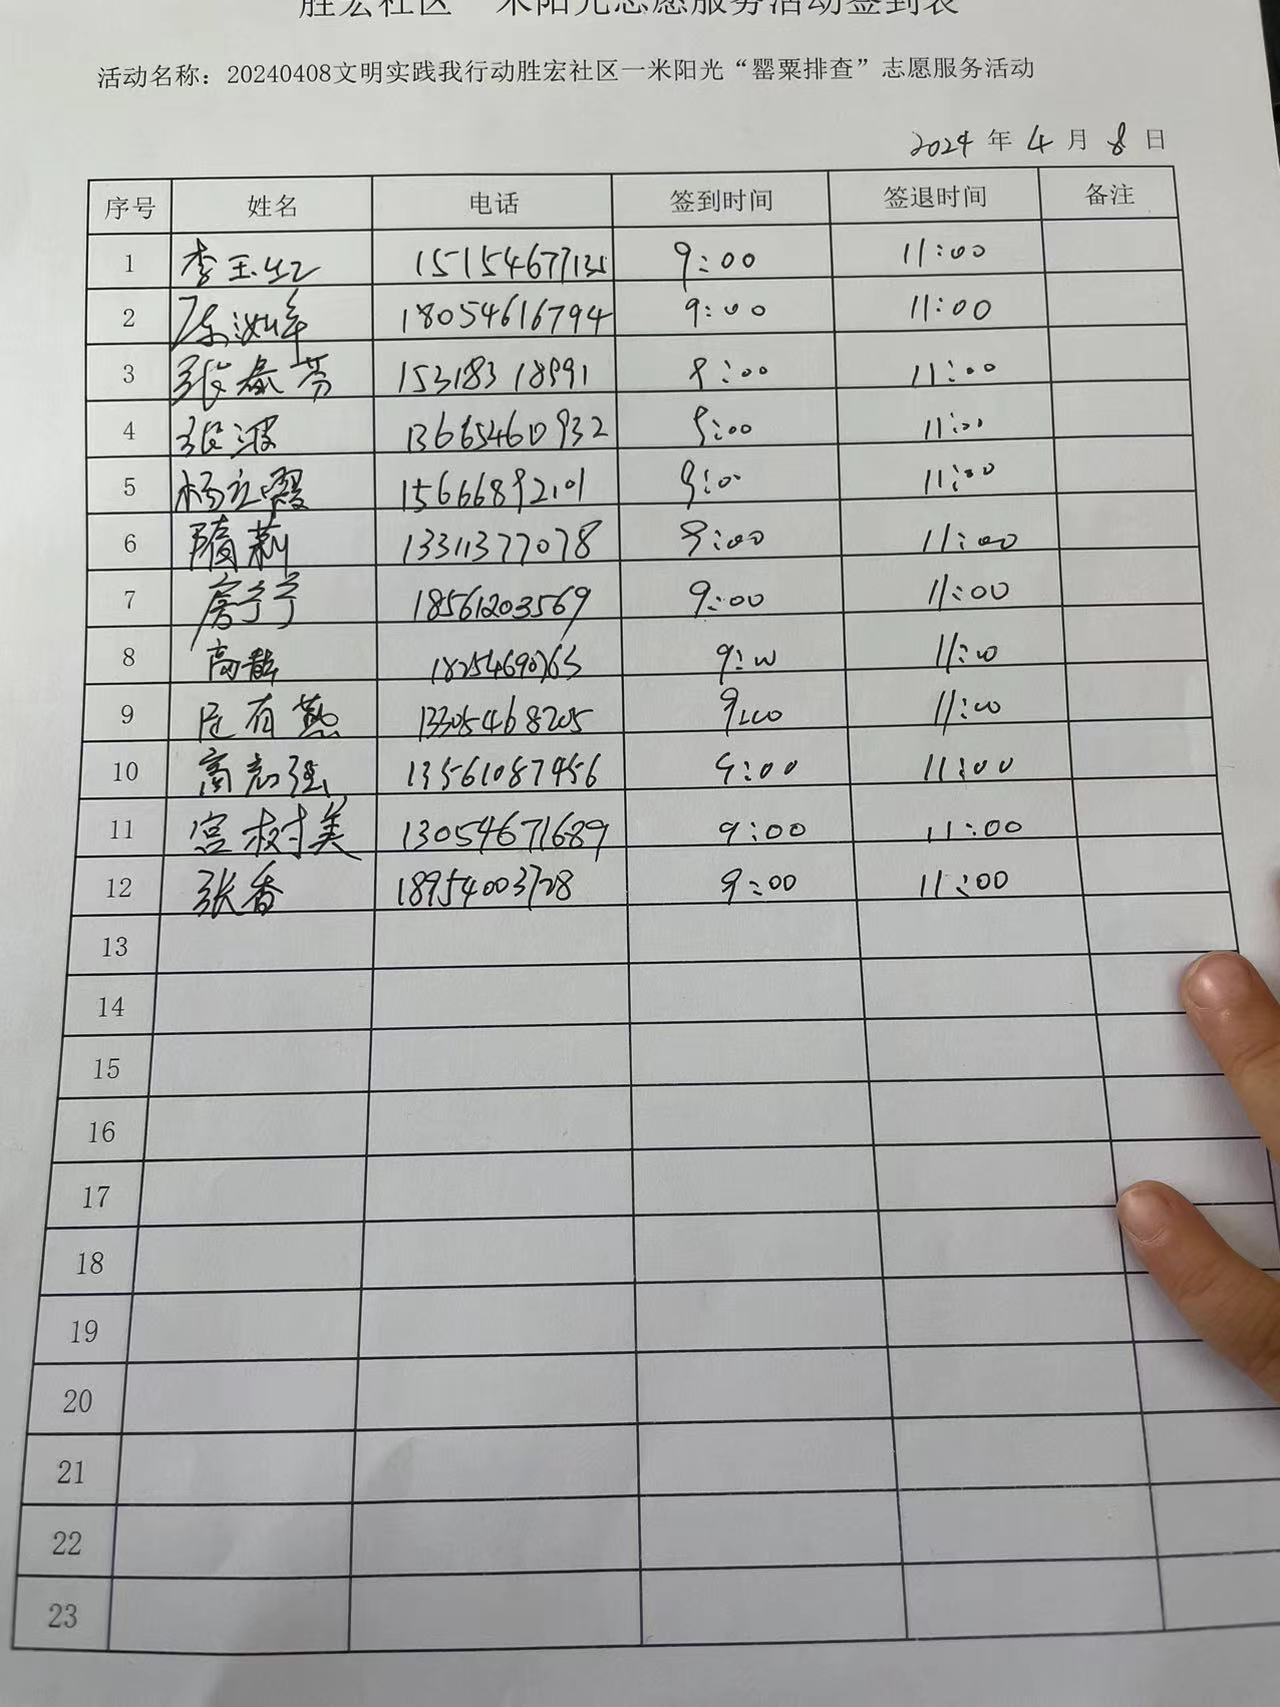 胜宏社区一米阳光志愿服务活动签到表
活动名称：20240408文明实践我行动胜宏社区一米阳光“罂粟排查”志愿服务活动
2024 年 4 月 8 日
序号 姓名 电话 签到时间 签退时间 备注
1 李玉红 15154677135 9:00 11:00
2 18054616794 9:00 11:00
3 张春芳 15318318991 9:00 11:00
4 张波 13665460932 9:00 11:00
5 杨立霞 15666892101 9:00 11:00
6 隋莉 13311377078 9:00 11:00
7 房宁宁 18561203569 9:00 11:00
8 9:00 11:00
9 13305468205 9:00 11:00
10 高志强 13561087456 9:00 11:00
11 宫树美 13054671689 9:00 11:00
12 张香 18954003728 9:00 11:00
13
14
15
16
17
18
19
20
21
22
23